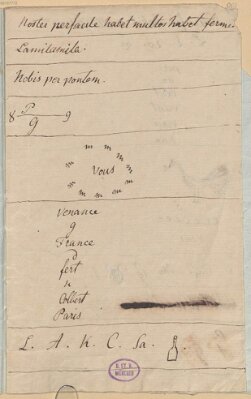 Noster perfacile habet multos habet ferme
Lamitamila.
Nobis per pontem.
8 P 9
9
m m m m
Vous
m m m m
Venance
9
France
d
fert
k
Colbert
Paris
L. A. K. C. Sa.